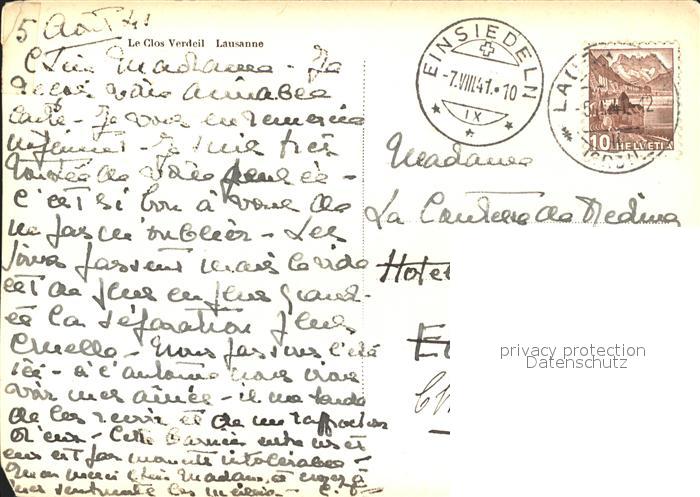 5 Août 41
Le Clos Verdeil Lausanne
Chère Madame - J'ai
reçu votre aimable
carte - Je vous en remercie
infiniment - Je suis très
touchée de votre pensée -
c'est si bon à vous de
ne pas m'oublier - Les
jours passent mais le vide
est de plus en plus grand -
et la séparation plus
cruelle - Nous passons l'été
ici - à l'automne nous irons
voir mes aînés - il me tarde
de les revoir et de me rapprocher
d'eux - Cette barrière entre nous et
eux est par moments intolérable -
merci chère Madame, et croyez à
mes sentiments les meilleurs -
EINSIEDELN
-7.VIII.41.-10
IX
10 HELVETIA
Madame
La Comtesse de Reding
Hotel
privacy protection
Datenschutz